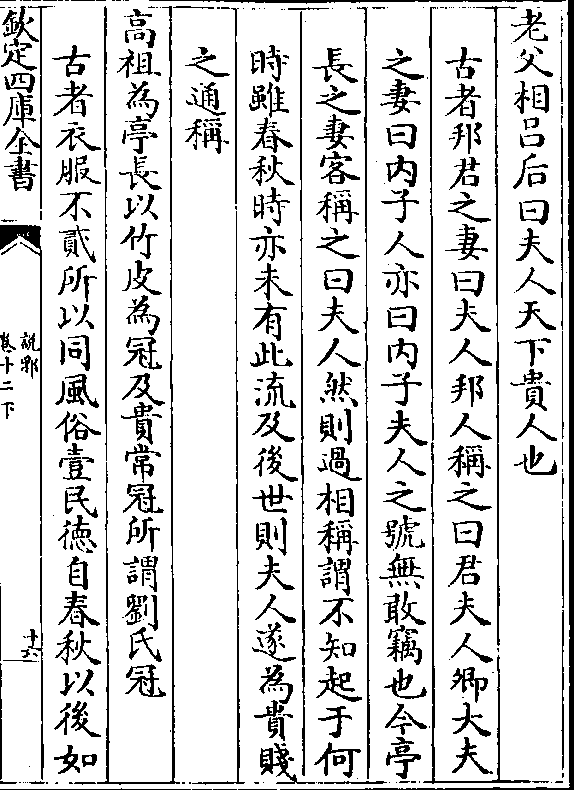 老父相吕后曰夫人天下貴人也
古者邦君之妻曰夫人邦人稱之曰君夫人卿大夫
之妻曰内子人亦曰内子夫人之號無敢竊也今亭
長之妻客稱之曰夫人然則過相稱謂不知起于何
時雖春秋時亦未有此流及後世則夫人遂為貴賤
之通稱
高祖為亭長以竹皮為冠及貴常冠所謂劉氏冠
古者衣服不貳所以同風俗壹民徳自春秋以後如
欽定四庫全書
説郛
卷十二下
十六